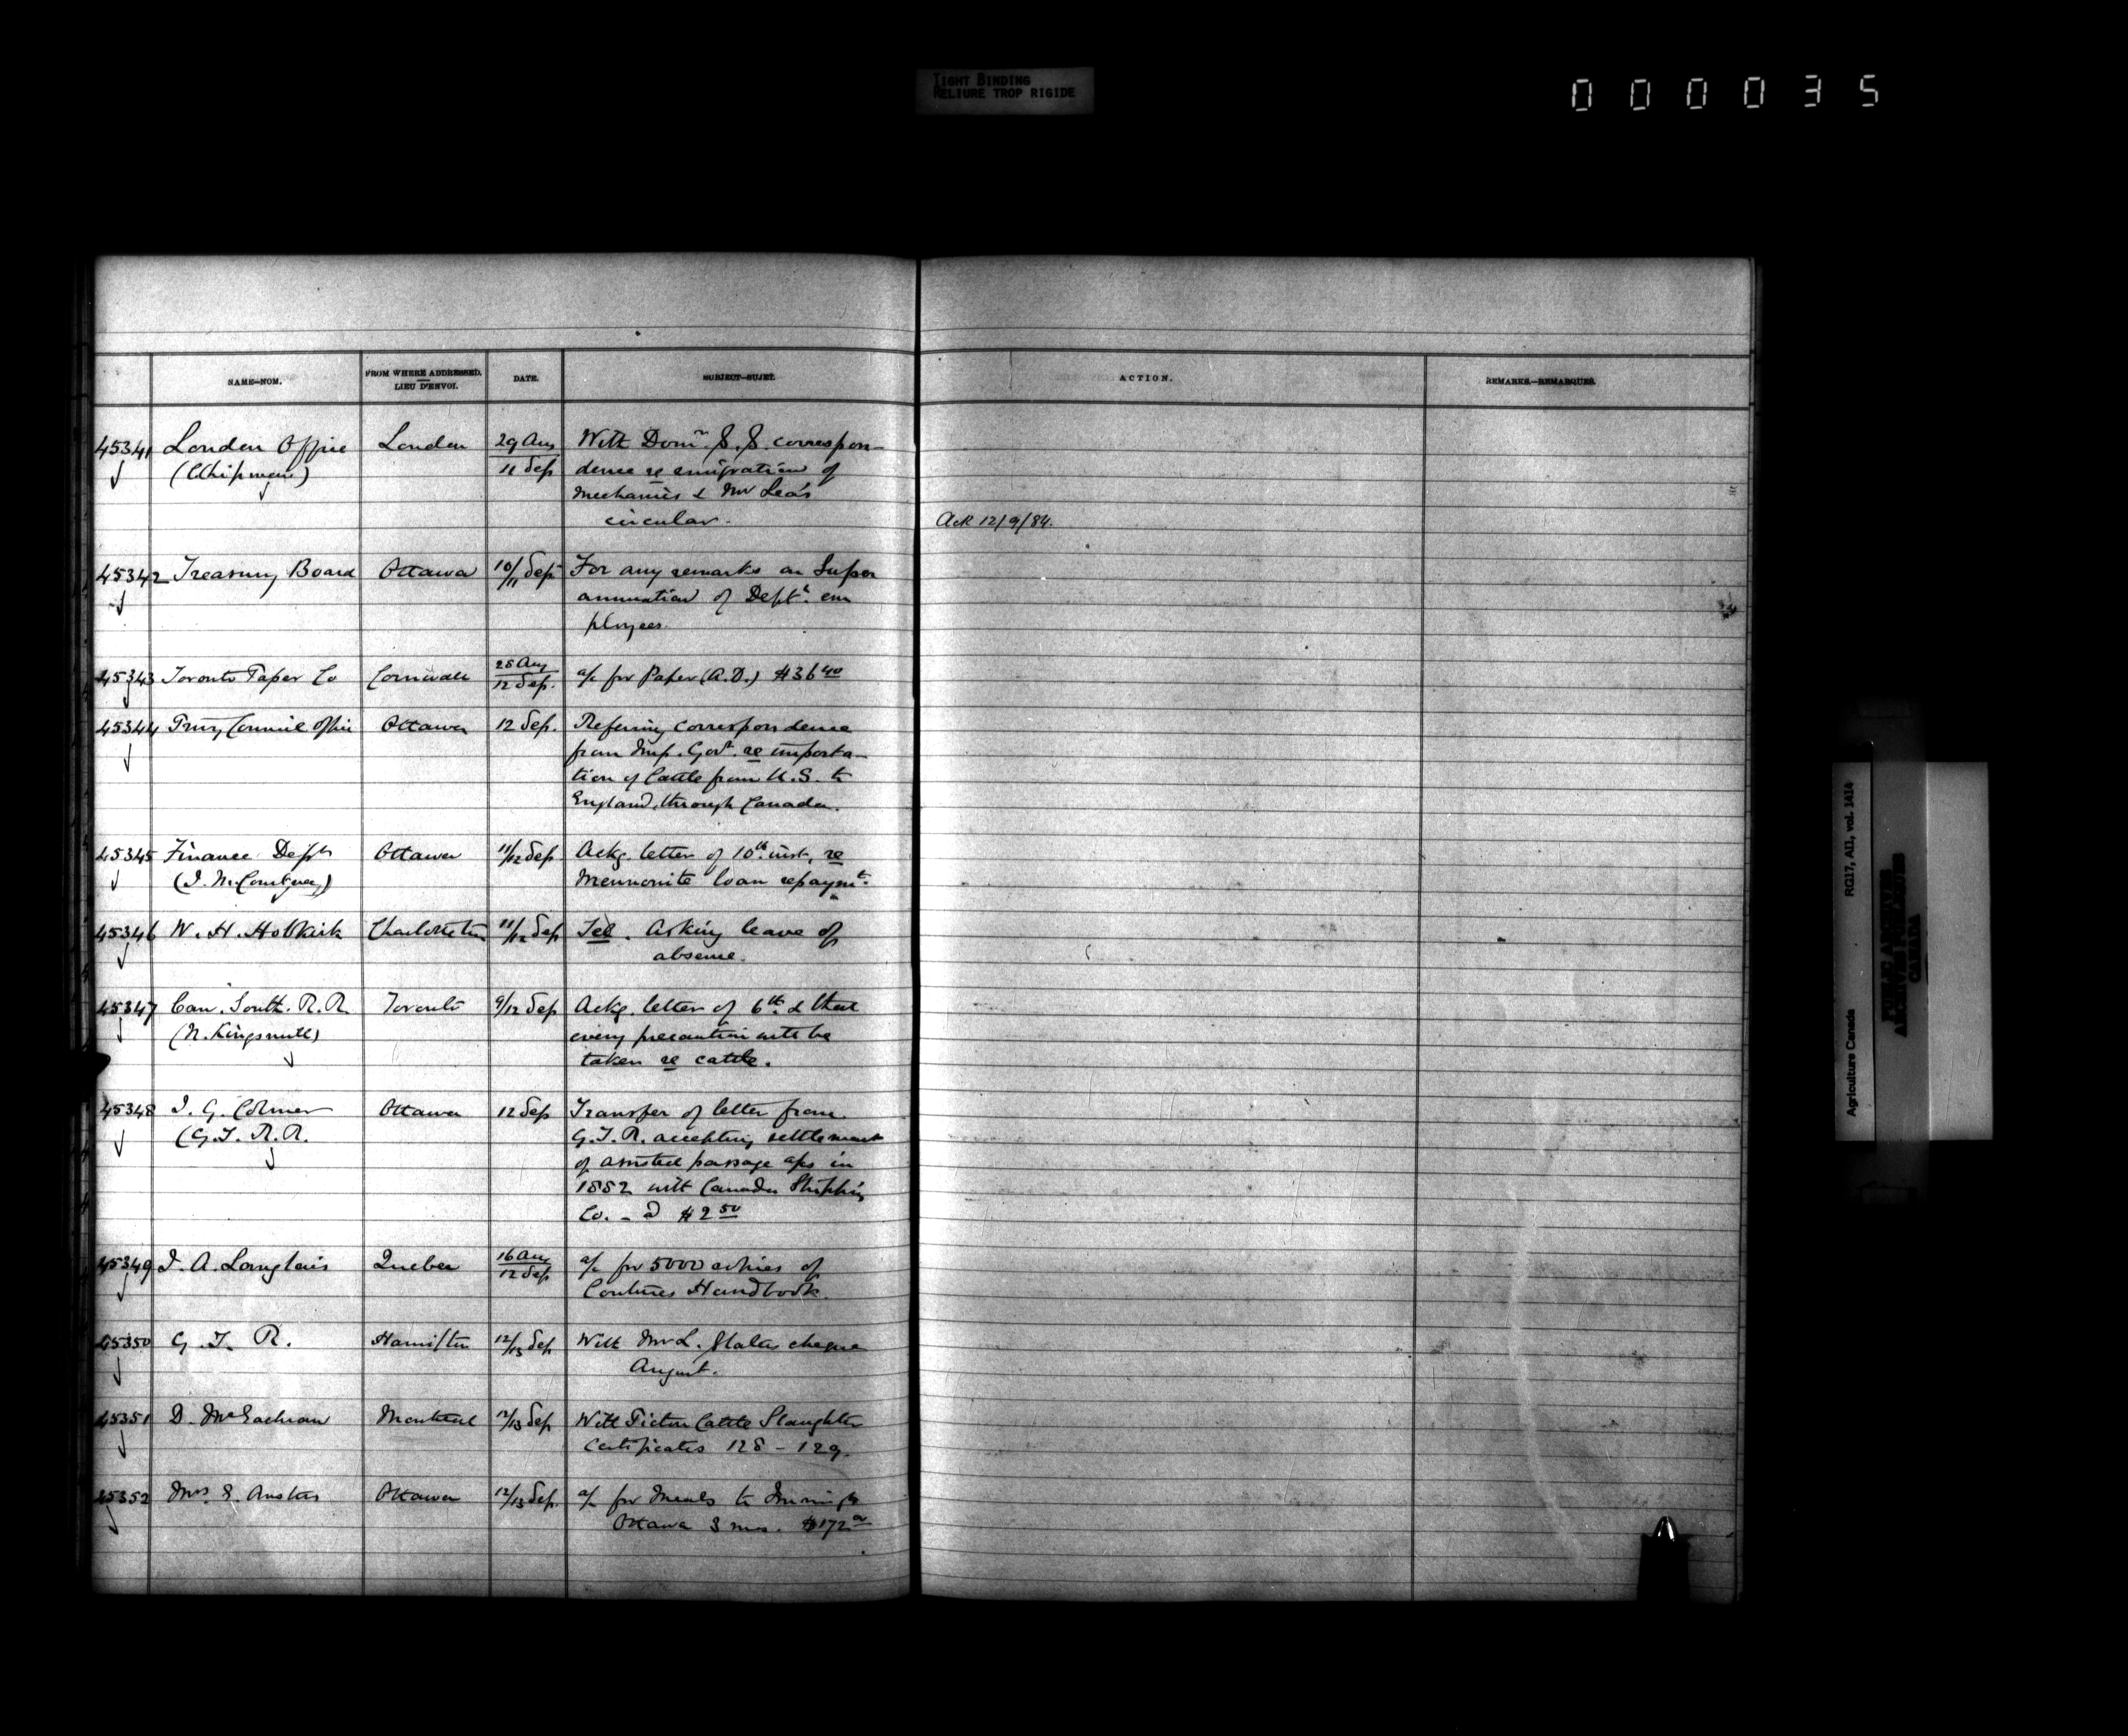 TIGHT BINDING
RELIURE TROP RIGIDE
000035
NAME—NOM.
FROM WHERE ADDRESSED.
LIEU D'ENVOI.
DATE.
SUBJECT—SUJET.
ACTION.
REMARKS.—REMARQUES.
45341 London Office London 29 Aug With Domn. S.S. correspon-
(Chipman) 11 Sep dence re emigration of
Mechanics & Mr Lea's
circular.
Ack 12/9/84.
45342 Treasury Board Ottawa 10/11 Sep For any remarks on Super
annuation of Deptl. em
ployees.
45343 Toronto Paper Co Cornwall 28 Aug 12 Sep. a/c for Paper (A.D.) $36 40
45344 Privy Council Office Ottawa 12 Sep. Refering correspondence
from Imp. Govt. re importa-
tion of Cattle from U.S. to
England, through Canada.
45345 Finance Dept Ottawa 11/12 Sep Ackg. letter of 10th inst, re
(J. M. Courtney) Mennonite loan repaymt.
45346 W. H. Hobkirk Charlottetn 11/12 Sep Tel. Asking leave of
absence.
45347 Can. South. R.R. Toronto 9/12 Sep Ackg. letter of 6th. & that
(N. Kingsmill) every precaution will be
taken re cattle.
45348 J. G. Colmer Ottawa 12 Sep Transfer of letter from
(G.T. R.R. G.T.R. accepting settlement
of assisted passage a/cs in
1882 with Canada Shipping
Co. - @ $2 50
45349 J. A. Langlais Quebec 16 Aug 12 Sep a/c for 5000 copies of
Coutures Handbook.
45350 G. T. R. Hamilton 12/13 Sep With Mr L. Slaters cheque
August.
45351 D. McEachran Montreal 12/13 Sep With Pictou Cattle Slaughter
Certificates 128 - 129.
45352 Mrs. Ottawa 12/13 Sep. a/c for Meals to Immigts
Ottawa 3 mos. $172
Agriculture Canada RG17, AI1, vol. 1414
PUBLIC ARCHIVES
ARCHIVES PUBLIQUES
CANADA